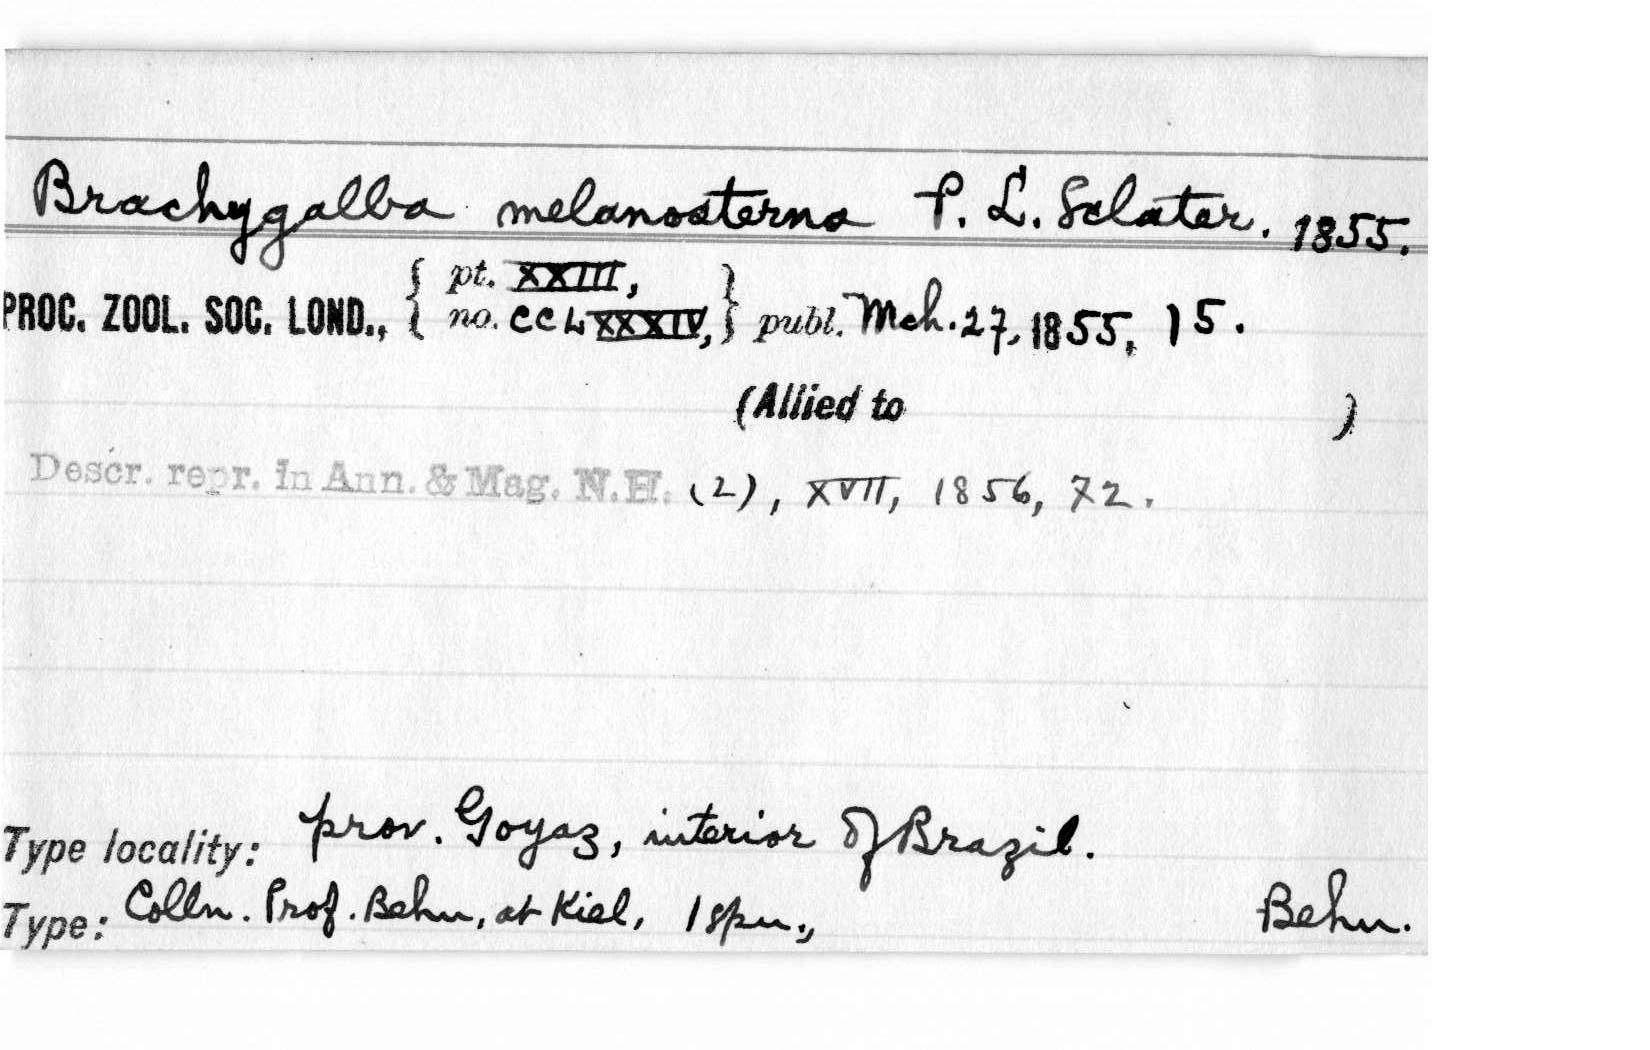 Brachygalba melanosterna P. L. Sclater. 1855.
PROC. ZOOL. SOC. LOND., { pt. XXIII, no. CCLXXXIV, } publ. Mch. 27, 1855, 15.
(Allied to )
Descr. repr. in Ann. & Mag. N.H. (2), XVII, 1856, 72.
Type locality: prov. Goyaz, interior of Brazil.
Type: Colln. Prof. Behn, at Kiel, 1 spn., Behn.